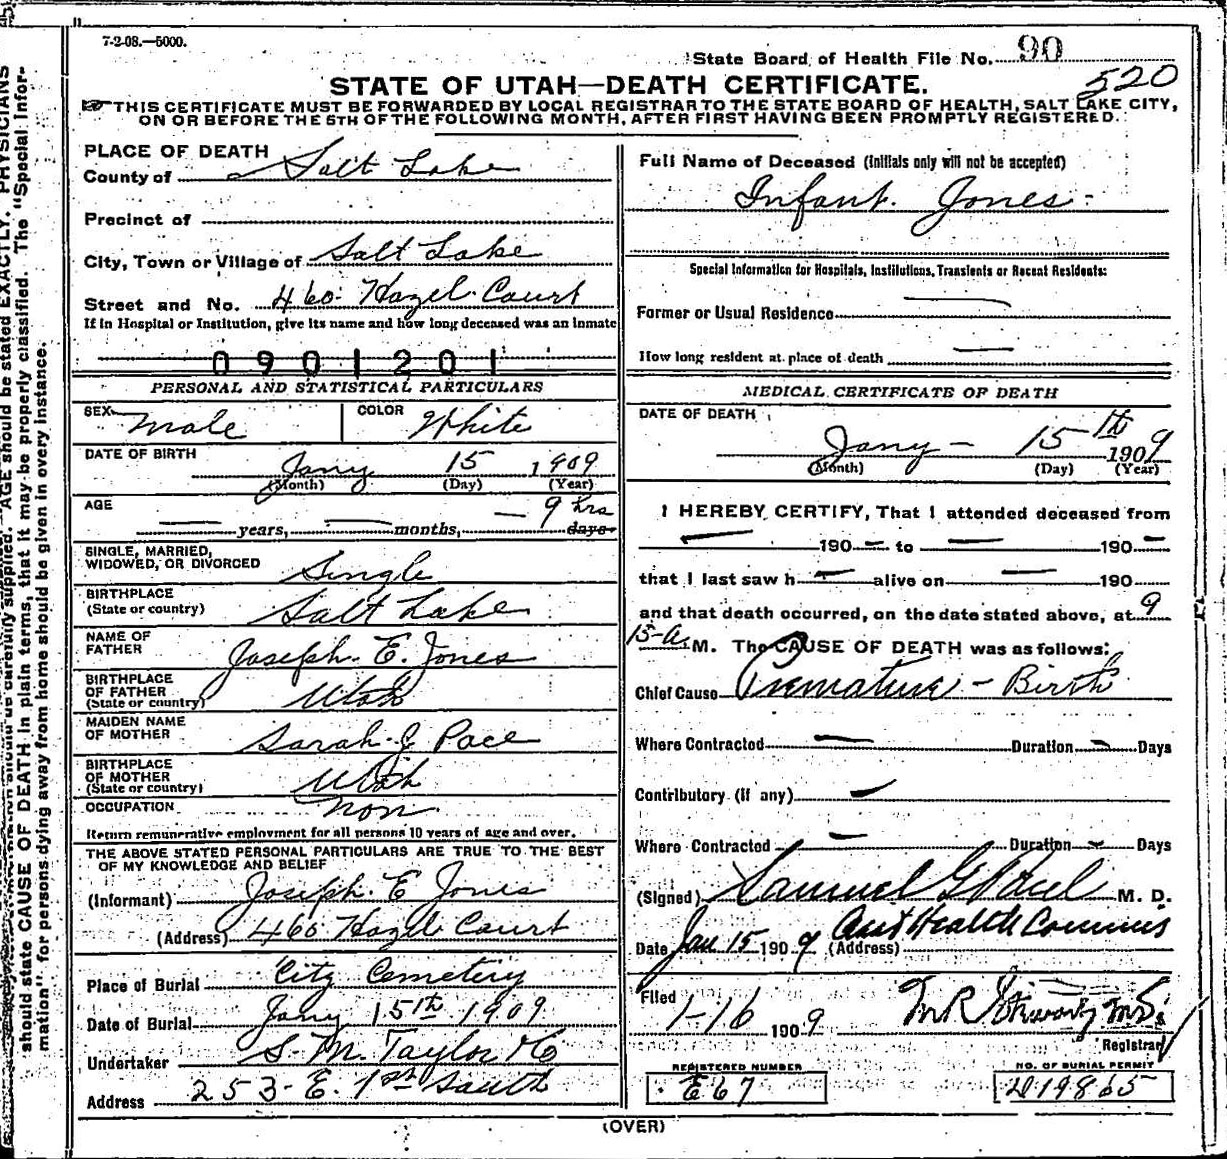 7-2-08.—5000.
State Board of Health File No. 90
520
STATE OF UTAH—DEATH CERTIFICATE.
THIS CERTIFICATE MUST BE FORWARDED BY LOCAL REGISTRAR TO THE STATE BOARD OF HEALTH, SALT LAKE CITY,
ON OR BEFORE THE 5TH OF THE FOLLOWING MONTH, AFTER FIRST HAVING BEEN PROMPTLY REGISTERED.
PLACE OF DEATH
County of Salt Lake
Precinct of
City, Town or Village of Salt Lake
Street and No. 460 Hazel Court
If in Hospital or Institution, give its name and how long deceased was an inmate
0901201
PERSONAL AND STATISTICAL PARTICULARS
SEX Male COLOR White
DATE OF BIRTH Jany 15 1909
(Month) (Day) (Year)
AGE — years, — months, — 9 hrs days
SINGLE, MARRIED,
WIDOWED, OR DIVORCED Single
BIRTHPLACE
(State or country) Salt Lake
NAME OF
FATHER Joseph. E. Jones
BIRTHPLACE
OF FATHER
(State or country) Utah
MAIDEN NAME
OF MOTHER Sarah J Pace
BIRTHPLACE
OF MOTHER
(State or country) Utah
OCCUPATION non
Return remunerative employment for all persons 10 years of age and over.
THE ABOVE STATED PERSONAL PARTICULARS ARE TRUE TO THE BEST
OF MY KNOWLEDGE AND BELIEF
(Informant) Joseph. E Jones
(Address) 460 Hazel Court
Place of Burial City Cemetery
Date of Burial Jany 15th 1909
Undertaker S. M. Taylor Co
Address 253 E. 1st South
Full Name of Deceased (Initials only will not be accepted)
Infant. Jones-
Special Information for Hospitals, Institutions, Transients or Recent Residents:
Former or Usual Residence —
How long resident at place of death —
MEDICAL CERTIFICATE OF DEATH
DATE OF DEATH
Jany — 15th 1909
(Month) (Day) (Year)
I HEREBY CERTIFY, That I attended deceased from
— 190 — to — 190 —
that I last saw h — alive on — 190
and that death occurred, on the date stated above, at 9
15-a. M. The CAUSE OF DEATH was as follows:
Chief Cause Premature - Birth
Where Contracted — Duration — Days
Contributory (if any) —
Where Contracted — Duration — Days
(Signed) Samuel G Paul M. D.
Date Jan 15 1909 (Address) Asst Health Commis
Filed 1-16 1909
Registrar
REGISTERED NUMBER
E67
NO. OF BURIAL PERMIT
D19865
(OVER)
should state CAUSE OF DEATH in plain terms, that it may be properly classified. The "Special Infor-
mation" for persons dying away from home should be given in every instance.